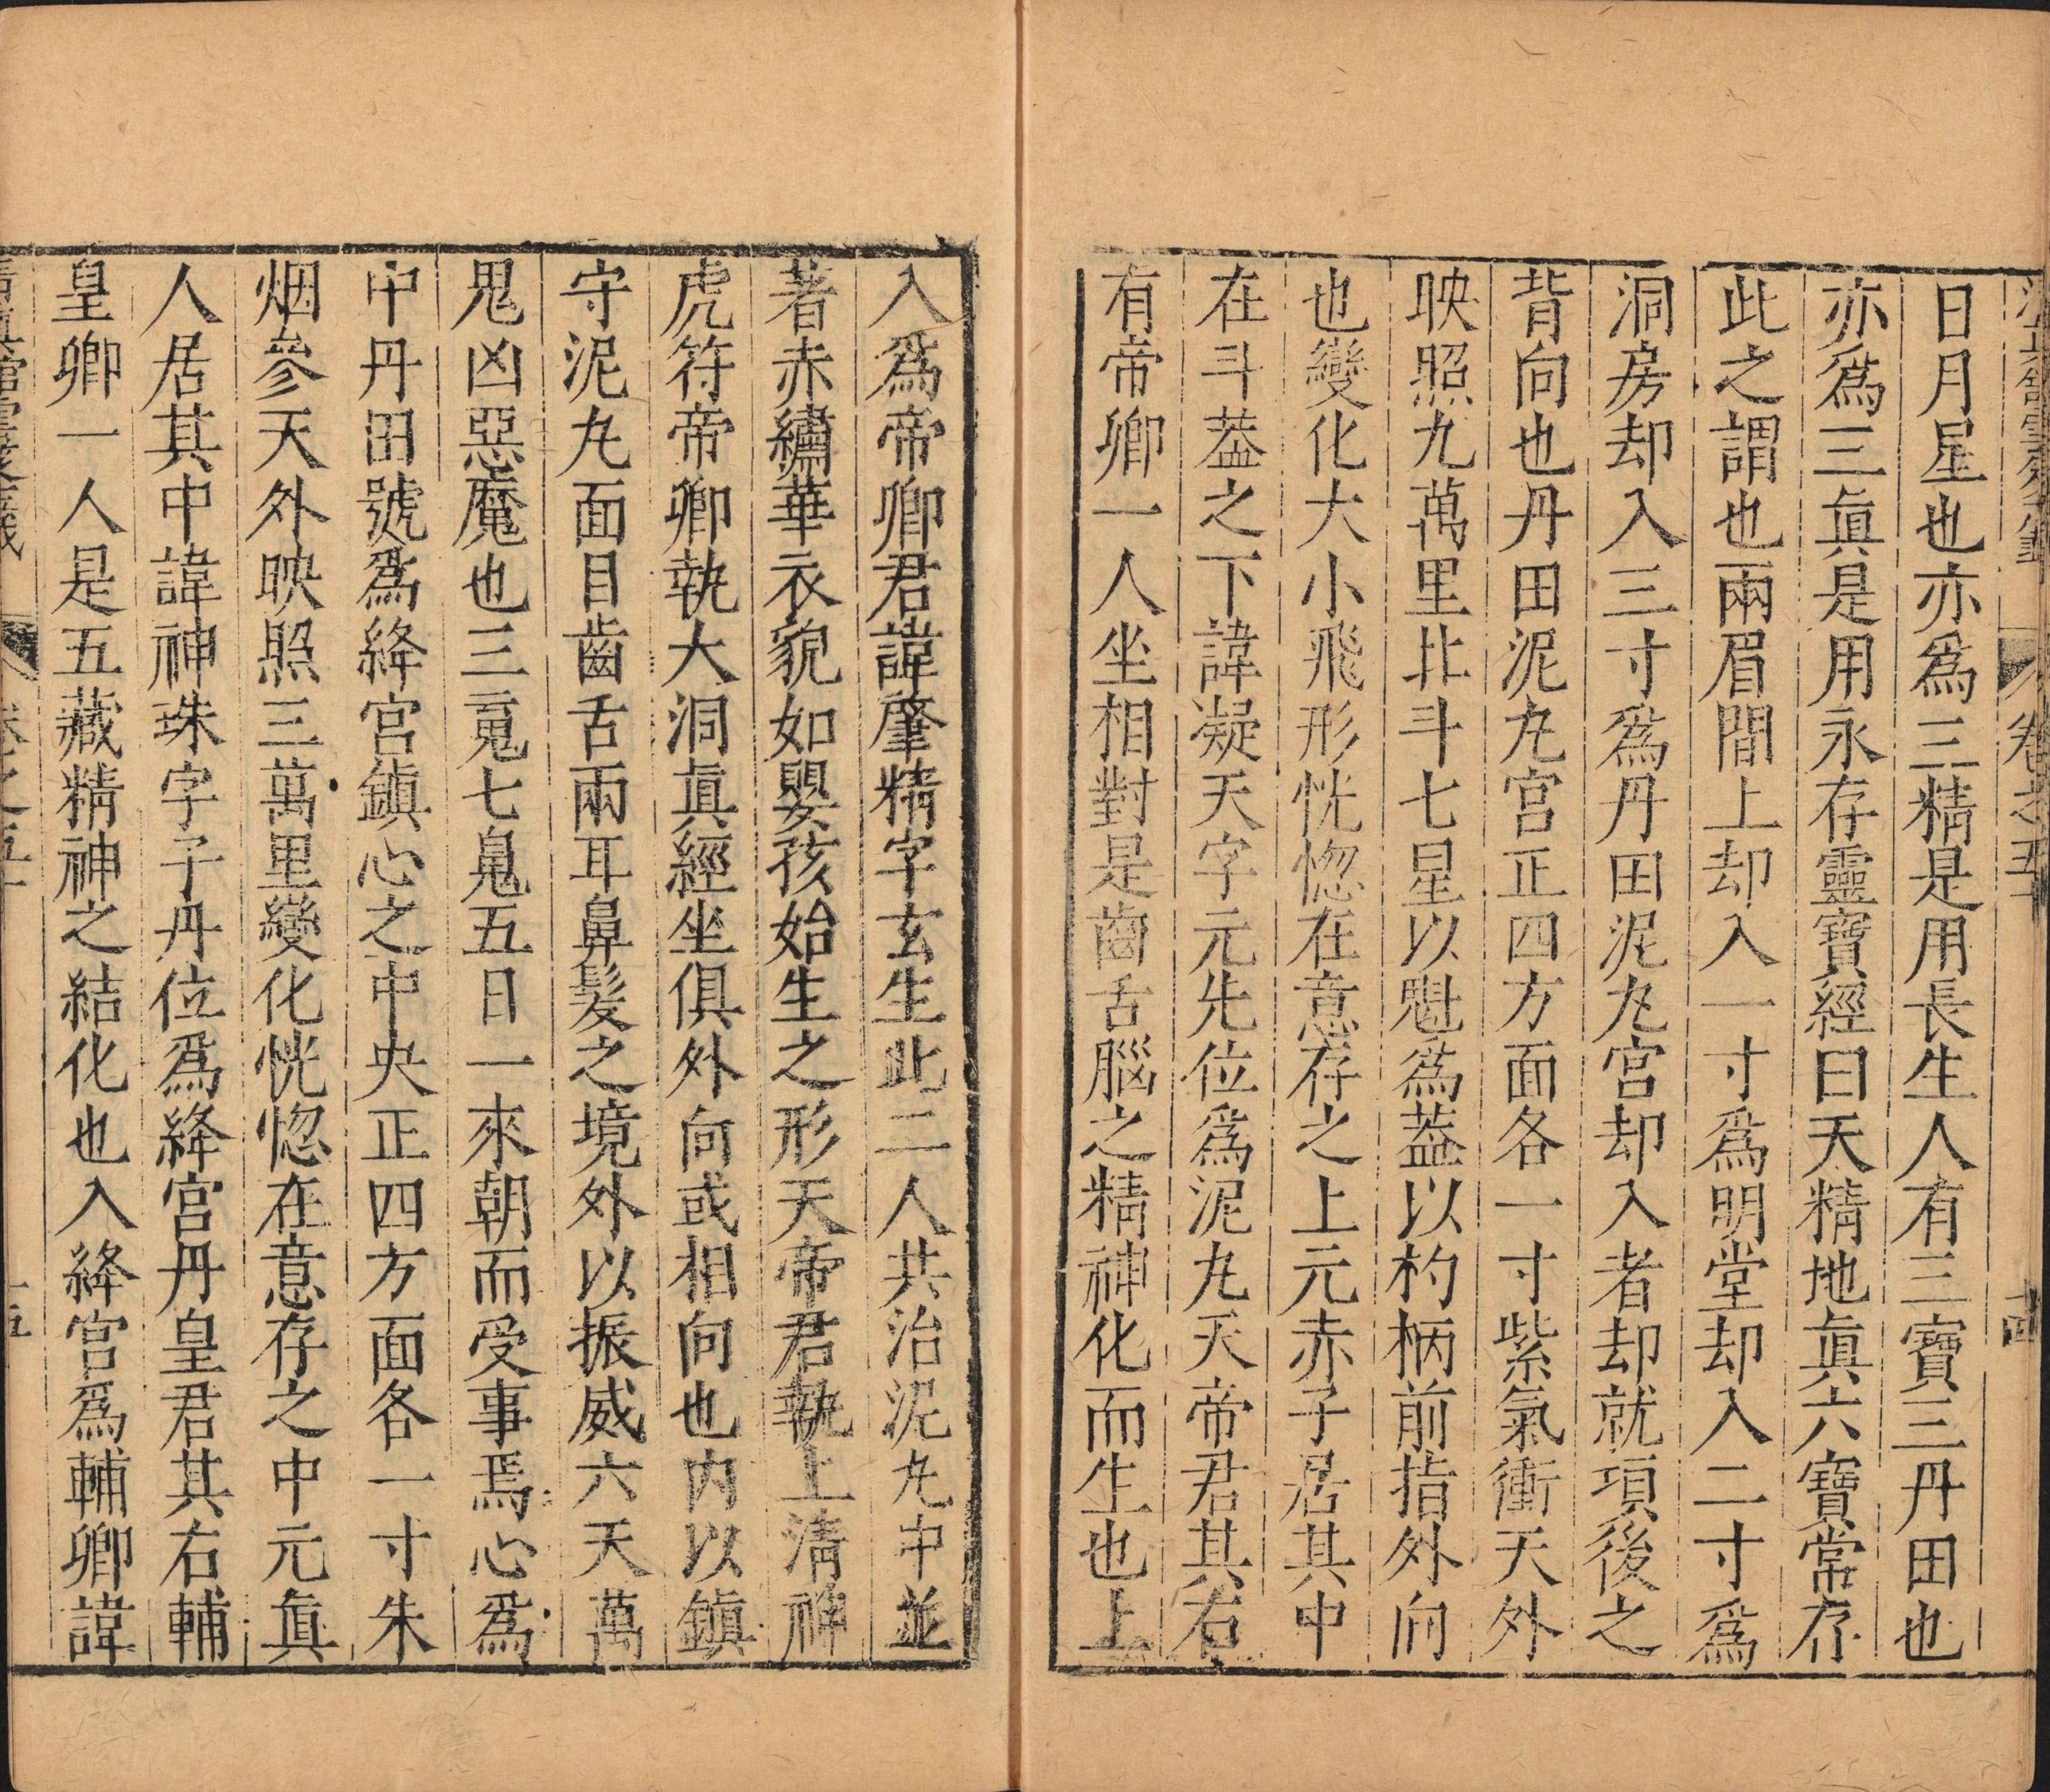 卷之五十
十四
日月星也亦爲三精是用長生人有三寶三丹田也
亦爲三眞是用永存靈寶經曰天精地眞六寶常存
此之謂也兩眉間上却入一寸爲明堂却入二寸爲
洞房却入三寸爲丹田泥丸宫却入者却就項後之
背向也丹田泥丸宫正四方面各一寸紫氣衝天外
映照九萬里北斗七星以魁爲蓋以杓柄前指外向
也變化大小飛形恍惚在意存之上元赤子居其中
在斗蓋之下諱凝天字元先位爲泥丸天帝君其右
有帝卿一人坐相對是齒舌腦之精神化而生也上
入爲帝卿君諱肇精字玄生此二人共治泥丸中並
著赤繡華衣貌如嬰孩始生之形天帝君執上清神
虎符帝卿執大洞眞經坐俱外向或相向也内以鎮
守泥丸面目齒舌兩耳鼻髮之境外以振威六天萬
鬼凶惡魔也三䰟七鬽五日一來朝而受事焉心爲
中丹田號爲絳宫鎮心之中央正四方面各一寸朱
烟參天外映照三萬里變化恍惚在意存之中元眞
人居其中諱神珠字子丹位爲絳宫丹皇君其右輔
皇卿一人是五藏精神之結化也入絳宫爲輔卿諱